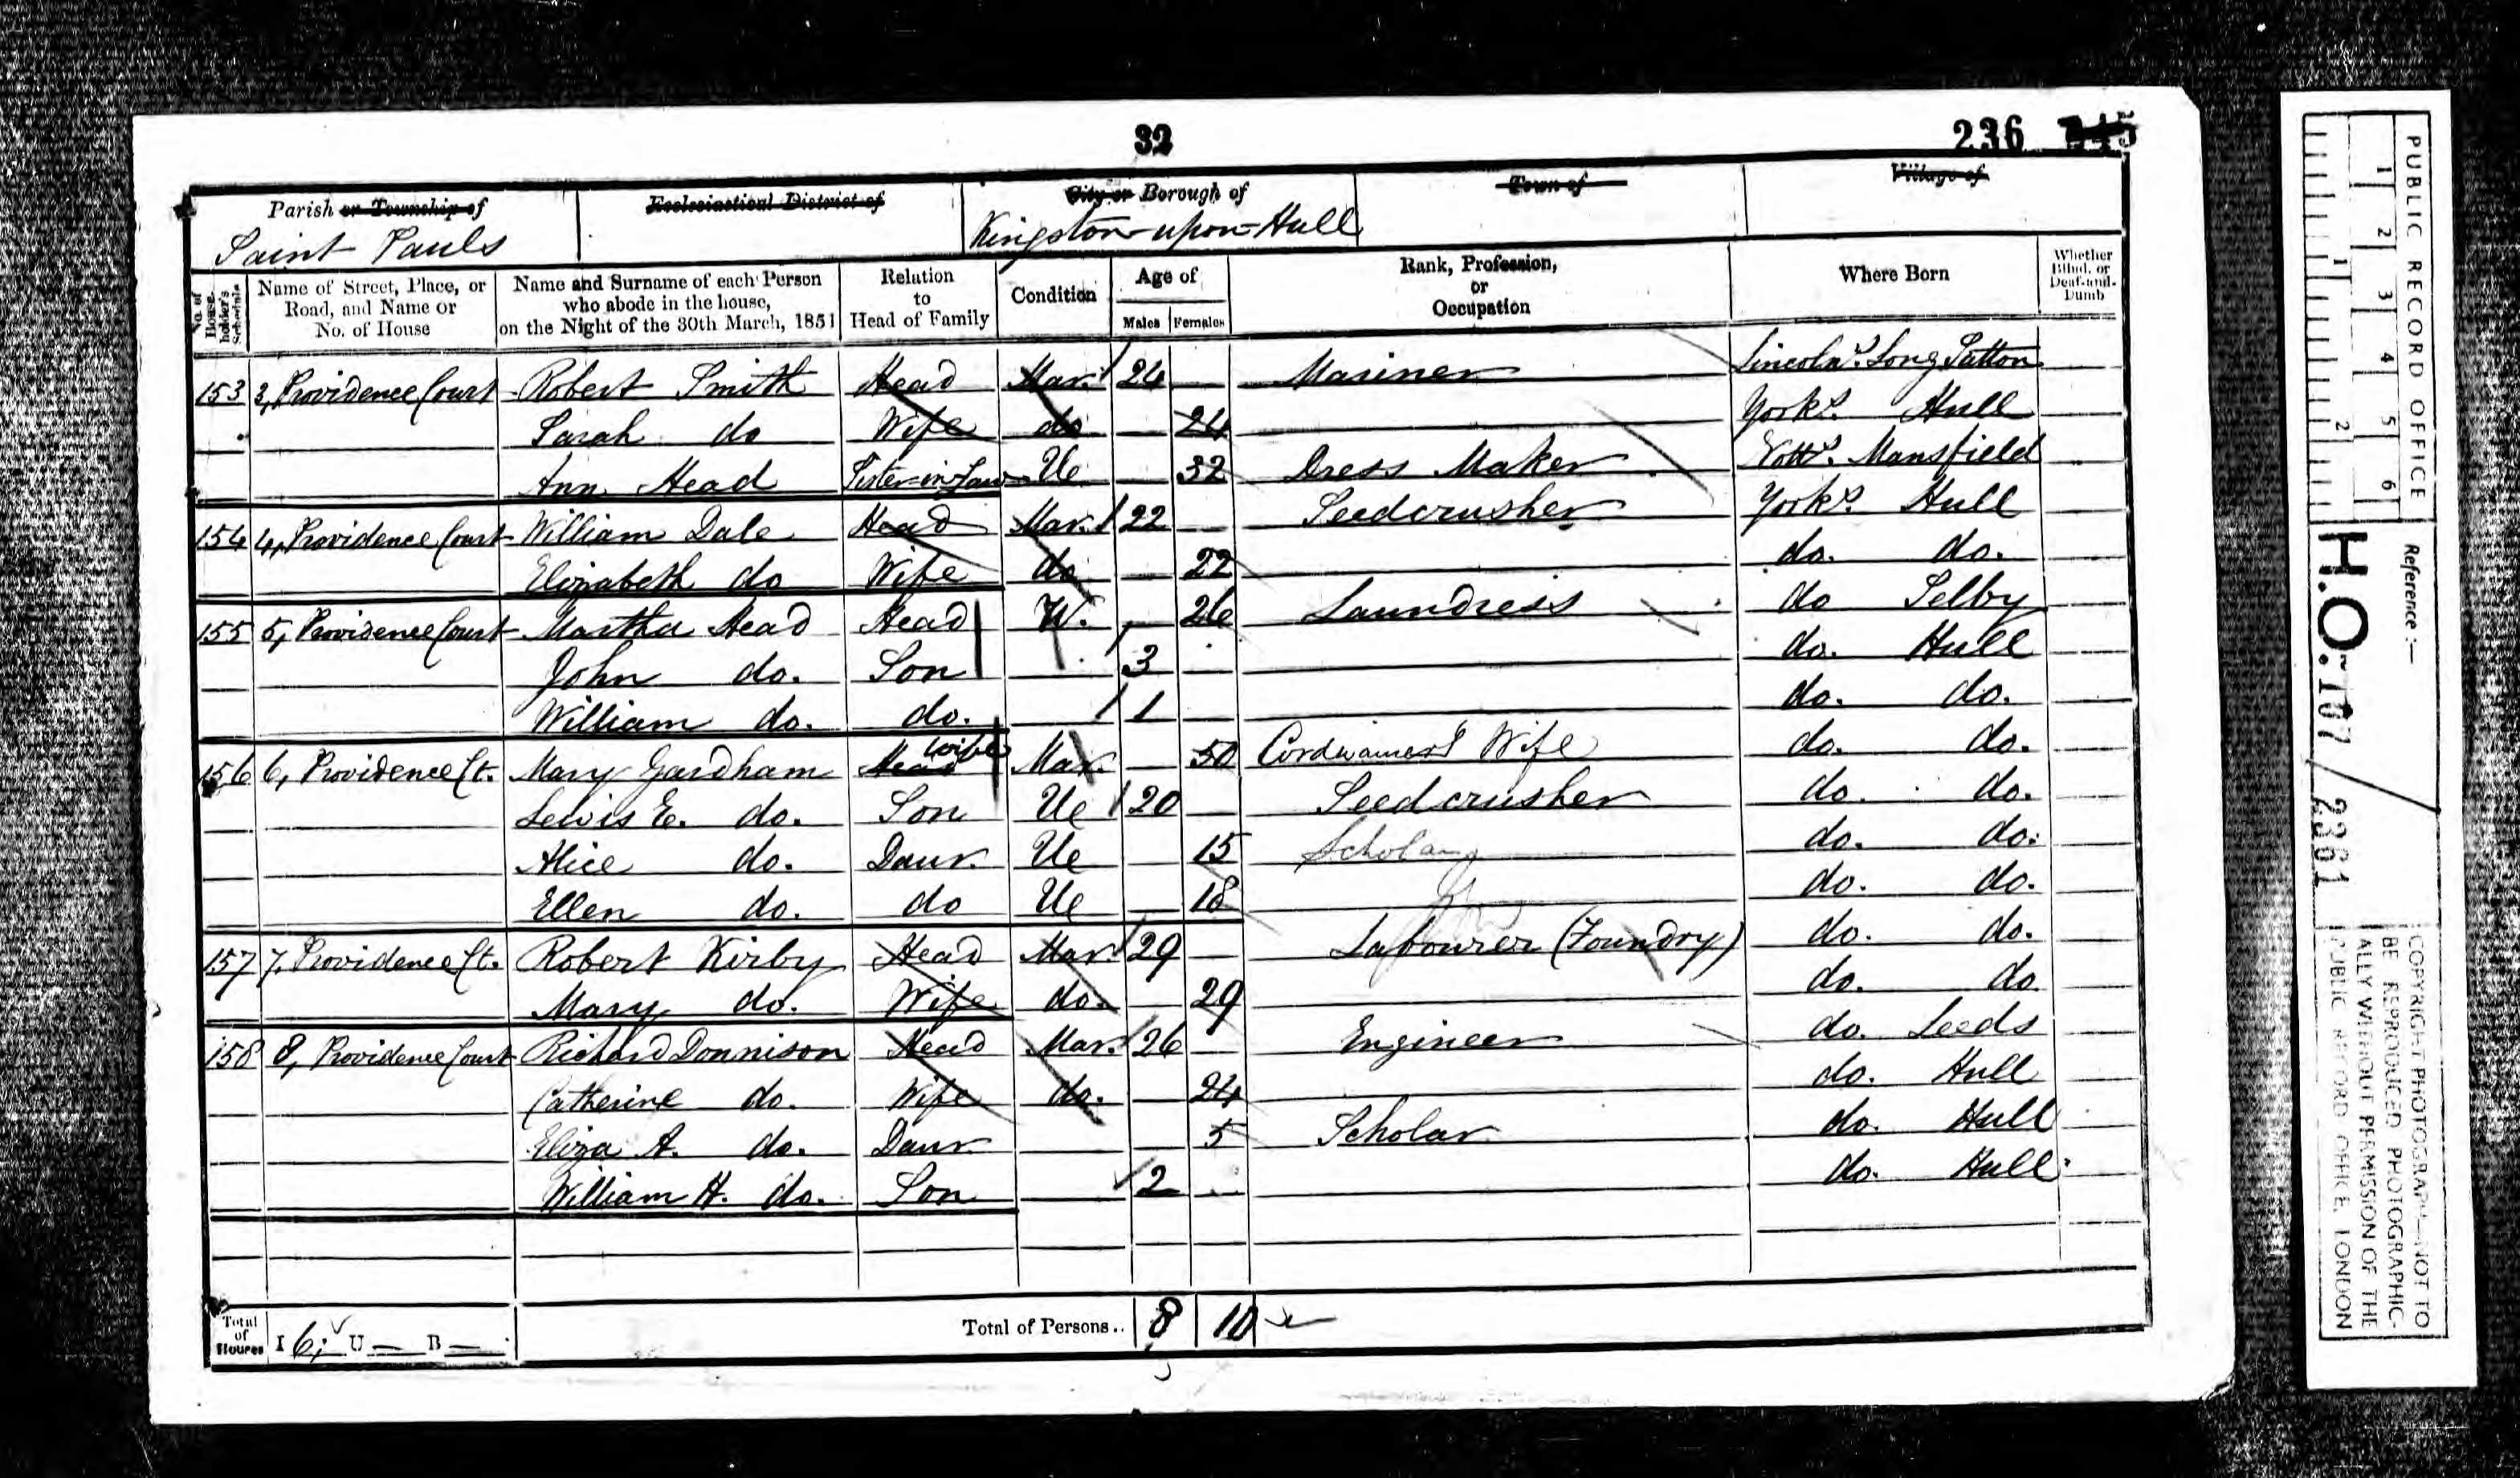 32
236
Parish or Township of
Ecclesiastical District of
City or Borough of
Town of
Village of
Saint Pauls
Kingston-upon-Hull
No. of House-holder's Schedule
Name of Street, Place, or Road, and Name or No. of House
Name and Surname of each Person who abode in the house, on the Night of the 30th March, 1851
Relation to Head of Family
Condition
Age of
Males Females
Rank, Profession, or Occupation
Where Born
Whether Blind, or Deaf-and-Dumb
153 3, Providence Court Robert Smith Head Mar. 24 Mariner Lincolns. Long Sutton
Sarah do Wife do 24 Yorks. Hull
Ann Head Sister-in-Law Ue 32 Dress Maker Notts. Mansfield
154 4, Providence Court William Dale Head Mar. 22 Seedcrusher Yorks. Hull
Elizabeth do Wife do 22 do. do.
155 5, Providence Court Martha Head Head W. 26 Laundress do Selby
John do. Son 3 do. Hull
William do. do. 1 do. do.
156 6, Providence Ct. Mary Gardham Head Wife Mar. 50 Cordwainers Wife do. do.
Lewis E. do. Son Ue 20 Seedcrusher do. do.
Alice do. Daur. Ue 15 Scholar do. do.
Ellen do. do Ue 18 do. do.
157 7, Providence Ct. Robert Kirby Head Mar. 29 Labourer (Foundry) do. do.
Mary do. Wife do. 29 do. do
158 8, Providence Court Richard Donnison Head Mar. 26 Engineer do. Leeds
Catherine do. Wife do. 24 do. Hull
Eliza A. do. Daur. 5 Scholar do. Hull
William H. do. Son 2 do. Hull
Total of Houses I 6; U — B —
Total of Persons.. 8 10
PUBLIC RECORD OFFICE
1 2 3 4 5 6
1 2
Reference :—
H.O. 107 / 2361
COPYRIGHT PHOTOGRAPH—NOT TO
BE REPRODUCED PHOTOGRAPHIC-
ALLY WITHOUT PERMISSION OF THE
PUBLIC RECORD OFFICE, LONDON